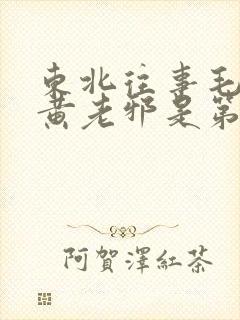 東北往事毛
黄老邪是第
阿賀澤紅茶